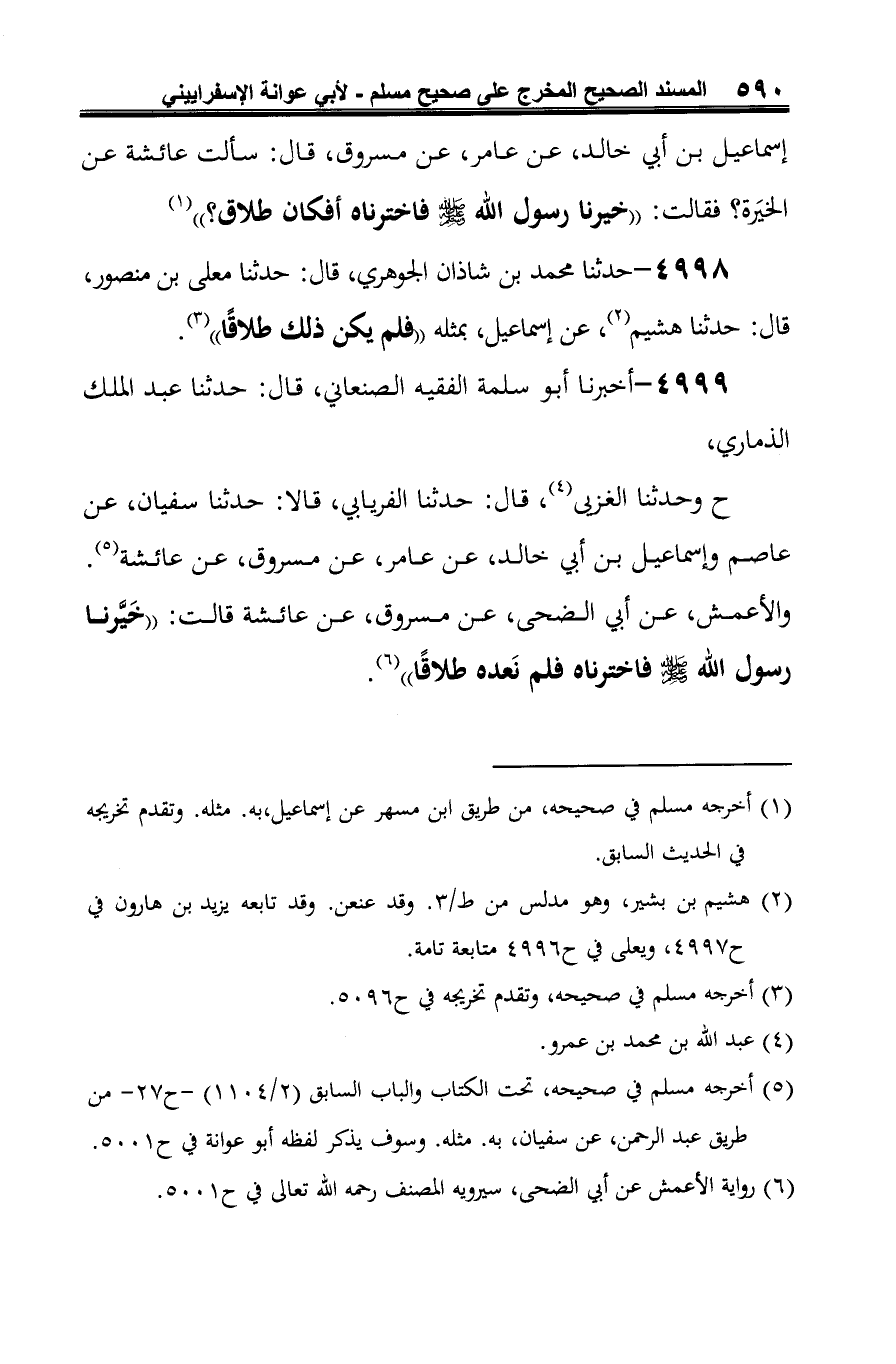 ٥٩٠ المسند الصحيح المخرج على صحيح مسلم - لأبي عوانة الإسفراييني
إسماعيل بن أبي خالد، عن عامر، عن مسروق، قال: سألت عائشة عن
الخيَرة؟ فقالت: ((خيرنا رسول الله ﷺ فاخترناه أفكان طلاق؟))(١)
٤٩٩٨-حدثنا محمد بن شاذان الجوهري، قال: حدثنا معلى بن منصور،
قال: حدثنا هشيم(٢)، عن إسماعيل، بمثله ((فلم يكن ذلك طلاقًا))(٣).
٤٩٩٩-أخبرنا أبو سلمة الفقيه الصنعاني، قال: حدثنا عبد الملك
الذماري،
ح وحدثنا الغزيى(٤)، قال: حدثنا الفريابي، قالا: حدثنا سفيان، عن
عاصم وإسماعيل بن أبي خالد، عن عامر، عن مسروق، عن عائشة(٥).
والأعمش، عن أبي الضحى، عن مسروق، عن عائشة قالت: ((خَيَّرنا
رسول الله ﷺ فاخترناه فلم نَعده طلاقًا))(٦).
(١) أخرجه مسلم في صحيحه، من طريق ابن مسهر عن إسماعيل،به. مثله. وتقدم تخريجه
في الحديث السابق.
(٢) هشيم بن بشير، وهو مدلس من ط/٣. وقد عنعن. وقد تابعه يزيد بن هارون في
ح٤٩٩٧، ويعلى في ح٤٩٩٦ متابعة تامة.
(٣) أخرجه مسلم في صحيحه، وتقدم تخريجه في ح٥٠٩٦.
(٤) عبد الله بن محمد بن عمرو.
(٥) أخرجه مسلم في صحيحه، تحت الكتاب والباب السابق (١١٠٤/٢) -ح٢٧- من
طريق عبد الرحمن، عن سفيان، به. مثله. وسوف يذكر لفظه أبو عوانة في ح٥٠٠١.
(٦) رواية الأعمش عن أبي الضحى، سيرويه المصنف رحمه الله تعالى في ح٥٠٠١.